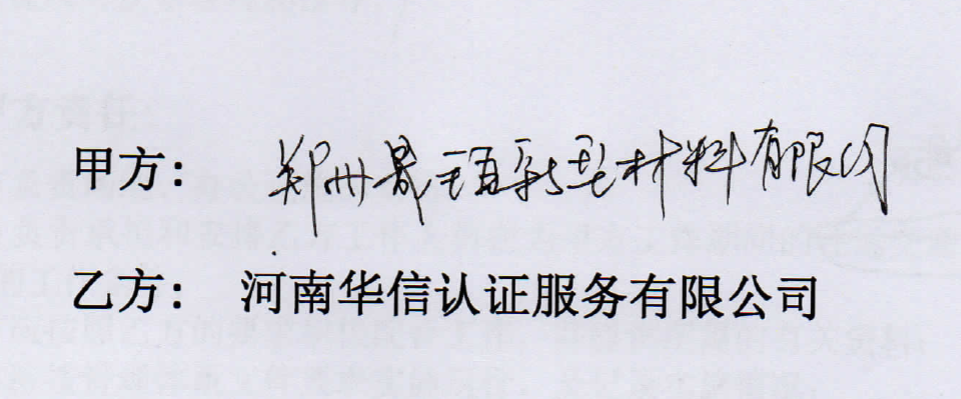 甲方： 郑州新型材料有限公司
乙方： 河南华信认证服务有限公司